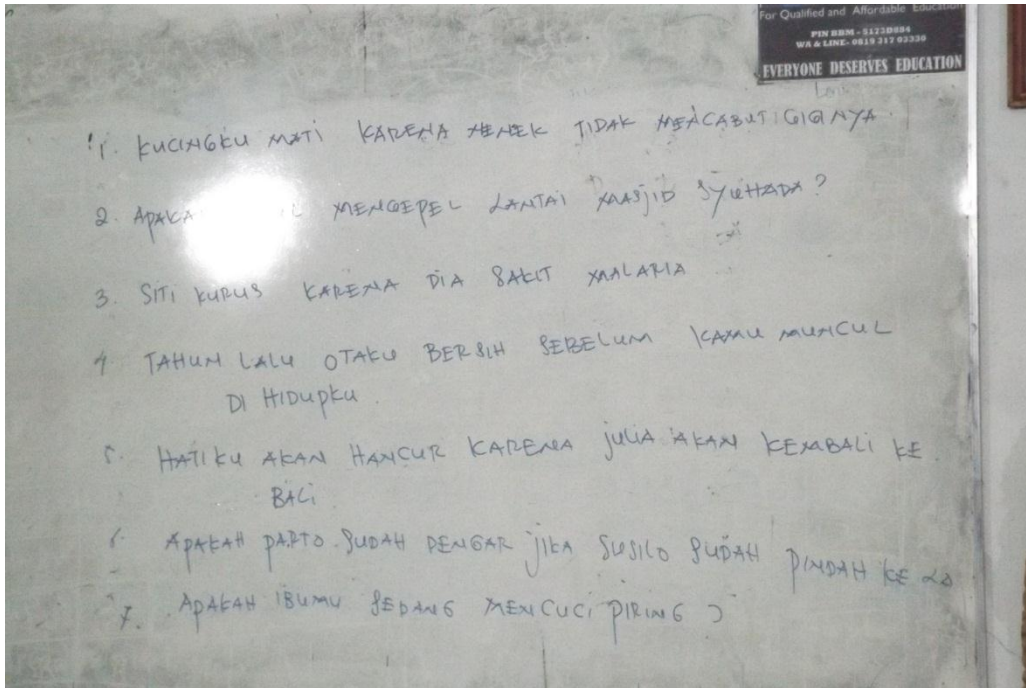 For Qualified and Affordable Education
PIN BBM - 5123D884
WA & LINE- 0819 317 03330
EVERYONE DESERVES EDUCATION
1. KUCINGKU MATI KARENA NENEK TIDAK MENCABUT GIGINYA
2. APAKA MENGEPEL LANTAI MASJID SYUHADA?
3. SITI KURUS KARENA DIA SAKIT MALARIA
4 TAHUN LALU OTAKU BERSIH SEBELUM KAMU MUNCUL
DI HIDUPKU.
5. HATIKU AKAN HANCUR KARENA JULIA AKAN KEMBALI KE
BALI
6. APAKAH PARTO SUDAH DENGAR JIKA SUSILO SUDAH PINDAH KE
7. APAKAH IBUMU SEDANG MENCUCI PIRING ?